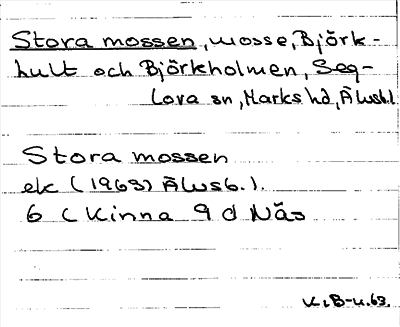 Stora mossen, mosse, Björk-
hult och Björkholmen, Seg-
lora sn, Marks hd, Älvsb.l.
Stora mossen
ek (1963) Älvsb.l.
6 C Kinna 9 d Näs
K.B-u.63.